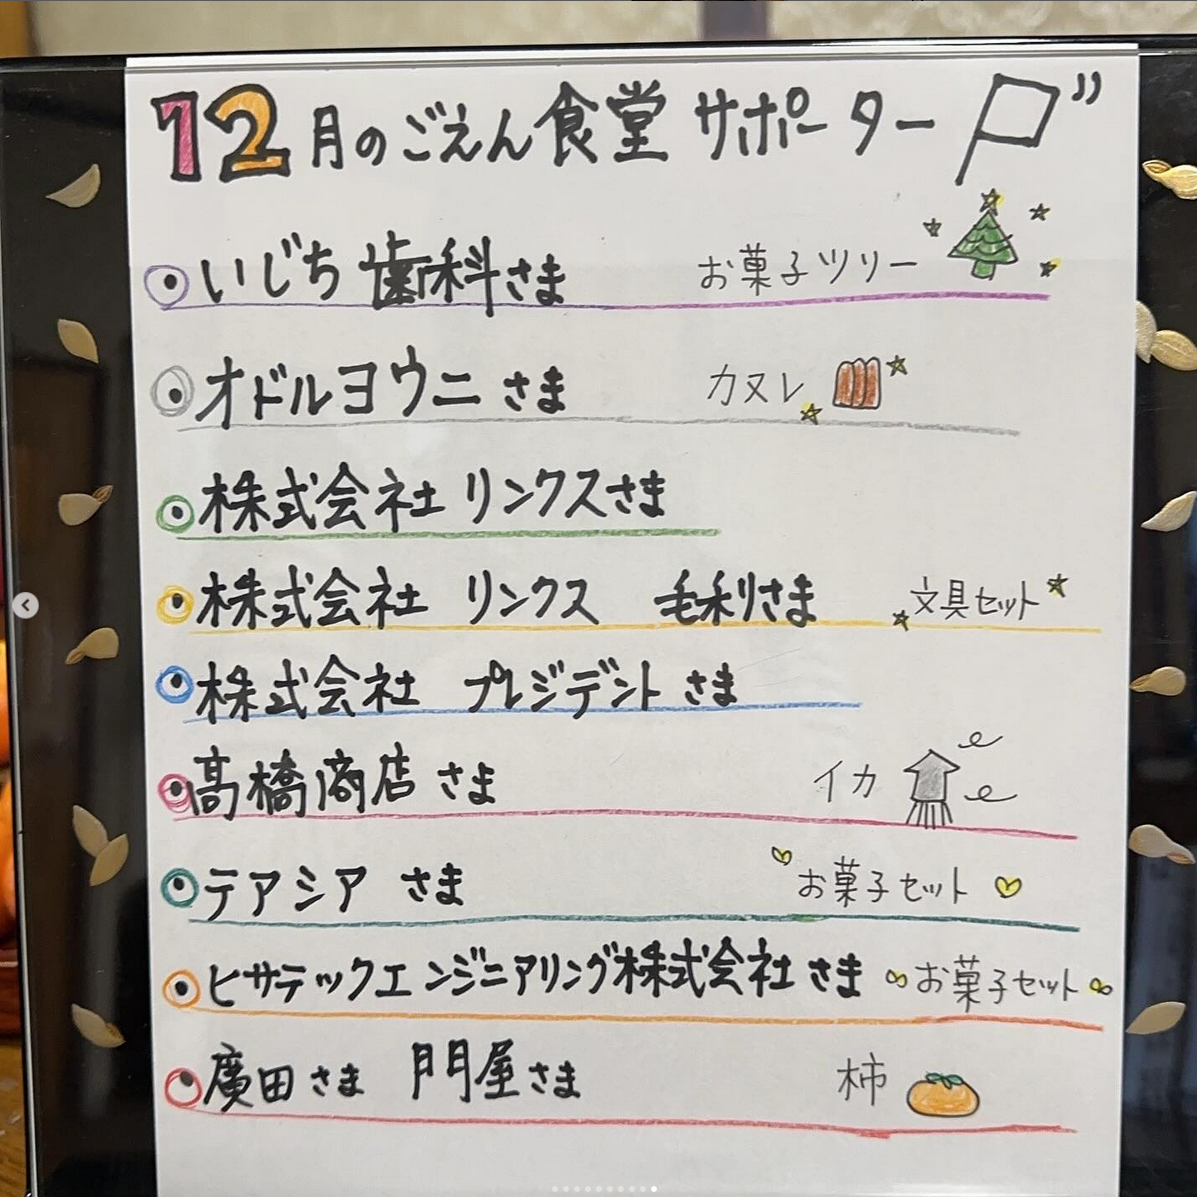 12月のごえん食堂 サポーター
いじち歯科さま お菓子ツリー
オドルヨウニ さま カヌレ
株式会社 リンクスさま
株式会社 リンクス 毛利さま 文具セット
株式会社 プレジデント さま
髙橋商店 さま イカ
テアシア さま お菓子セット
ヒサテックエンジニアリング株式会社 さま お菓子セット
廣田さま 門屋さま 柿